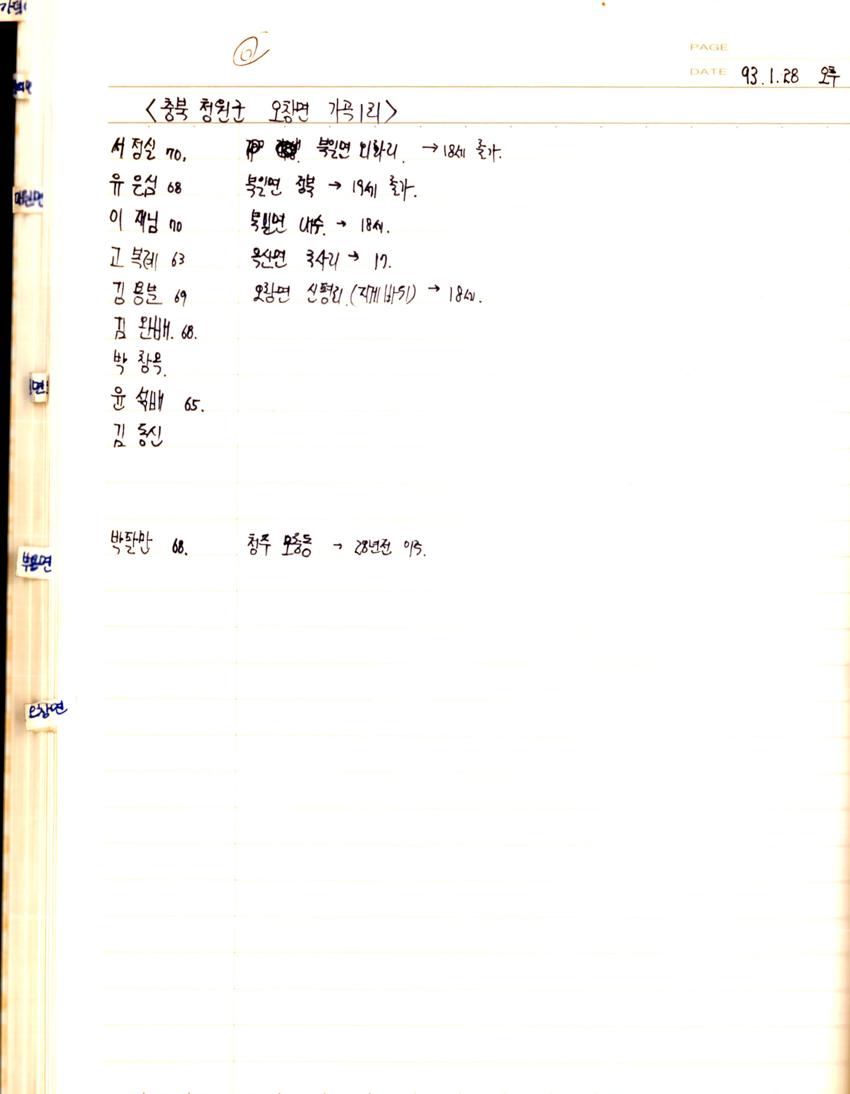 PAGE
DATE 93.1.28 오후
<충북 청원군 오창면 가곡1리>
서정실 70. 북일면 외하리. → 18세 출가.
유은섬 68 북일면 정북 → 19세 출가.
이재님 70 북일면 내수. → 18세.
고복례 63 옥산면 국사리 → 17.
김용분 69 오창면 신평리 (지게바위) → 18세.
김완배. 68.
박창옥.
윤석배 65.
김동신
박달만 68. 청주 모충동 → 28년전 이주.
부용면
오창면